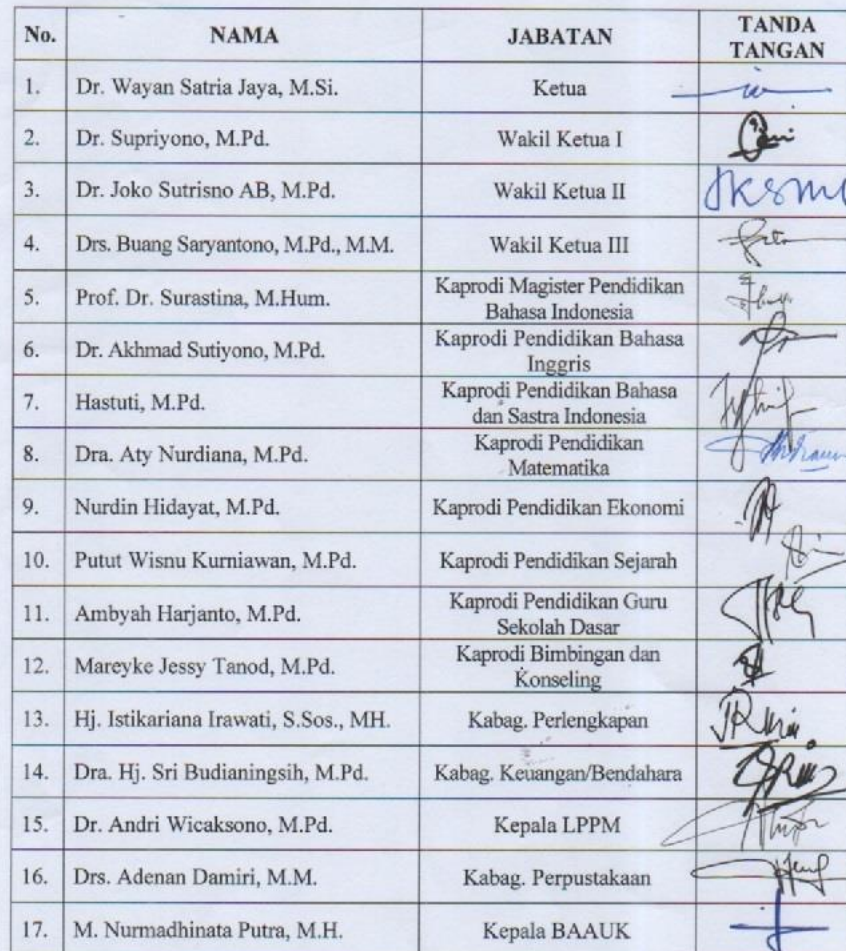 No. NAMA JABATAN TANDA
TANGAN
1. Dr. Wayan Satria Jaya, M.Si. Ketua
2. Dr. Supriyono, M.Pd. Wakil Ketua I
3. Dr. Joko Sutrisno AB, M.Pd. Wakil Ketua II
4. Drs. Buang Saryantono, M.Pd., M.M. Wakil Ketua III
5. Prof. Dr. Surastina, M.Hum. Kaprodi Magister Pendidikan
Bahasa Indonesia
6. Dr. Akhmad Sutiyono, M.Pd. Kaprodi Pendidikan Bahasa
Inggris
7. Hastuti, M.Pd. Kaprodi Pendidikan Bahasa
dan Sastra Indonesia
8. Dra. Aty Nurdiana, M.Pd. Kaprodi Pendidikan
Matematika
9. Nurdin Hidayat, M.Pd. Kaprodi Pendidikan Ekonomi
10. Putut Wisnu Kurniawan, M.Pd. Kaprodi Pendidikan Sejarah
11. Ambyah Harjanto, M.Pd. Kaprodi Pendidikan Guru
Sekolah Dasar
12. Mareyke Jessy Tanod, M.Pd. Kaprodi Bimbingan dan
Konseling
13. Hj. Istikariana Irawati, S.Sos., MH. Kabag. Perlengkapan
14. Dra. Hj. Sri Budianingsih, M.Pd. Kabag. Keuangan/Bendahara
15. Dr. Andri Wicaksono, M.Pd. Kepala LPPM
16. Drs. Adenan Damiri, M.M. Kabag. Perpustakaan
17. M. Nurmadhinata Putra, M.H. Kepala BAAUK